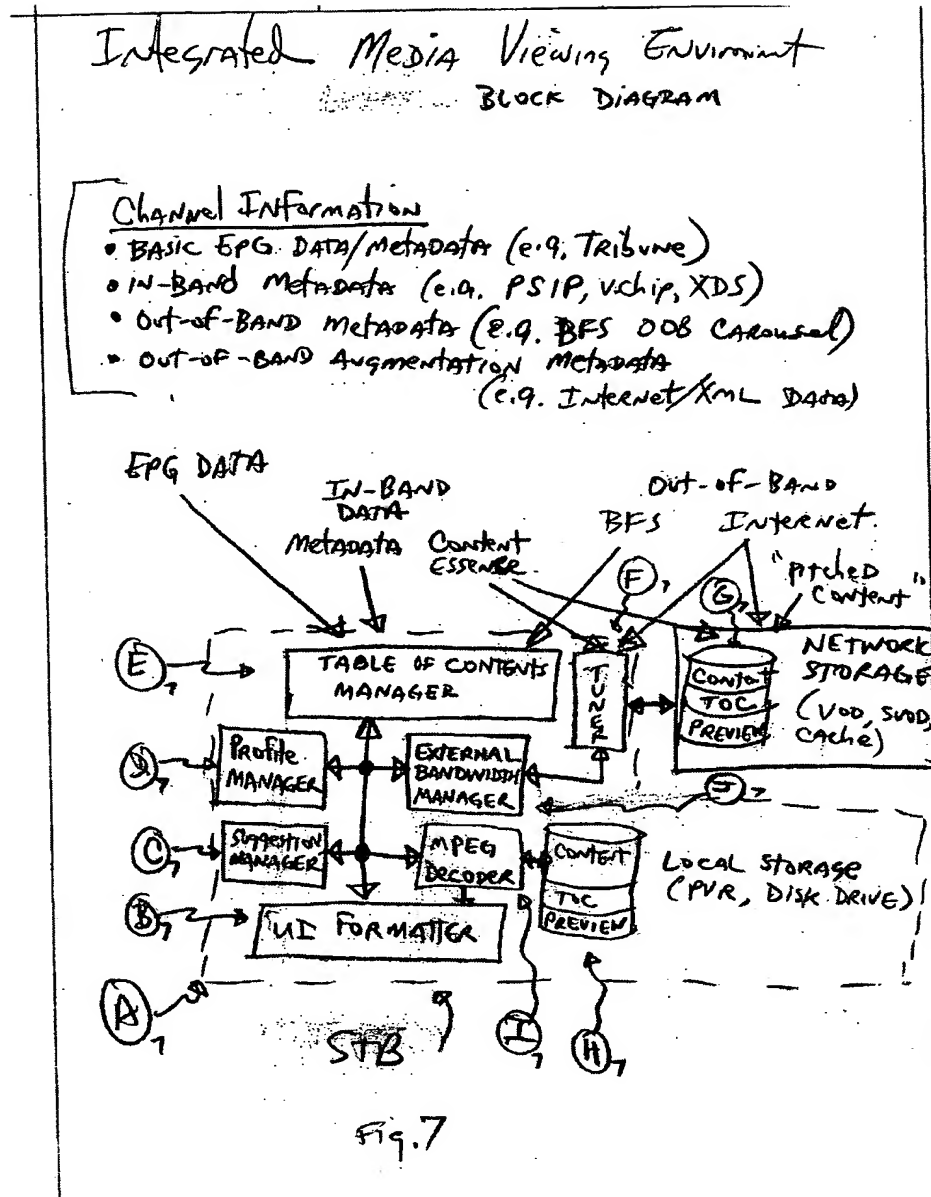 Integrated Media Viewing Environment
BLOCK DIAGRAM
Channel INFormation
• BASIC EPG DATA/Metadata (e.g. Tribune)
• IN-BAND Metadata (e.g. PSIP, Vchip, XDS)
• Out-of-BAND Metadata (e.g. BFS OOB Carousel)
• OUT-OF-BAND Augmentation Metadata
(e.g. Internet/XML Data)
EPG DATA
IN-BAND
DATA
Metadata
Content
Essense
Out-of-BAND
BFS
Internet
"Pitched
Content"
F7
G7
E7
TABLE OF CONTENTS
MANAGER
TUNER
Content
TOC
PREVIEW
NETWORK
STORAGE
(VOD, SVOD,
CAche)
D7
Profile
MANAGER
EXTERNAL
BANDWIDTH
MANAGER
J7
C7
Suggestion
MANAGER
MPEG
DECODER
Content
TOC
PREVIEW
LOCAL STORAGE
(PVR, DISK DRIVE)
B7
UI FORMATTER
A7
STB
I7
H7
Fig. 7